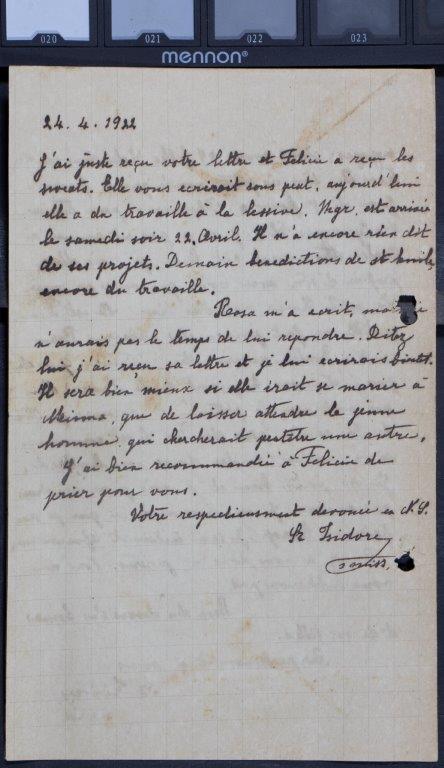 020 021 022 023
mennon®
24. 4. 1922
J'ai juste reçu votre lettre et Felicie a reçu les
sweats. Elle vous ecrirait sous peut, aujourd'hui
elle a du travaille à la lessive. Mgr. est arrivée
le samedi soir 22. Avril. Il n'a encore rien dit
de ses projets. Demain benedictions de st
encore du travaille.
Rosa m'a ecrit, mais je
n'aurais pas le temps de lui repondre. Ditez
lui, j'ai reçu sa lettre et je lui ecrirais bientot.
Il sera bien mieux si elle irait se marier à
que de laisser attendre le jeune
homme, qui chercherait peutetre une autre.
J'ai bien recommandée à Felicie de
prier pour vous.
Votre respectieusment devouée en N. S.
Sr Isidore